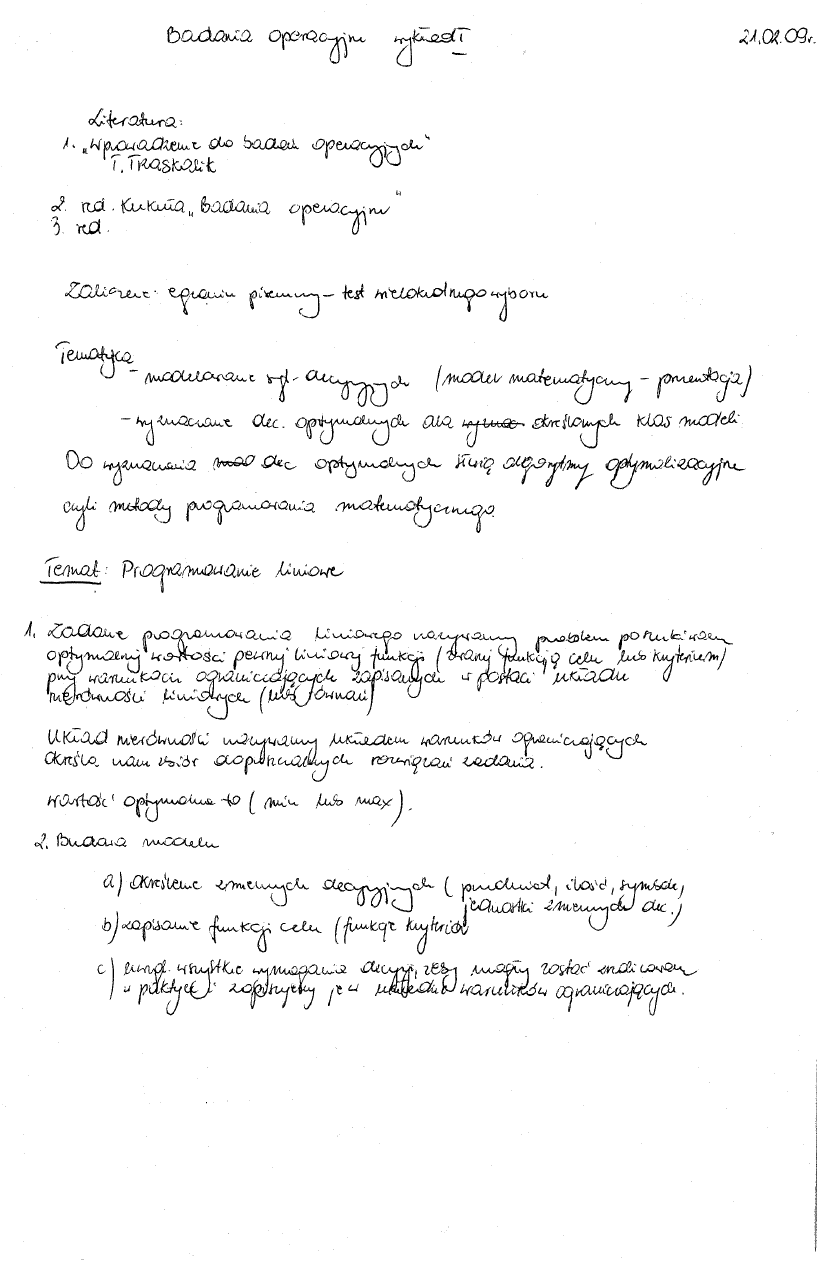 Badania operacyjne wykład I
21.02.09r.
Literatura:
1. „Wprowadzenie do badań operacyjnych"
T. TRASKALIK
2. red. Kukuła „Badania operacyjne"
3. red.
Zaliczenie: egzamin pisemny – test wielokrotnego wyboru
Tematyka
- modelowanie syt. decyzyjnych (model matematyczny – prezentacja)
- wyznaczanie dec. optymalnych dla określonych klas modeli
Do wyznaczania dec optymalnych służą algorytmy optymalizacyjne
czyli metody programowania matematycznego.
Temat: Programowanie liniowe
1. Zadanie programowania liniowego nazywamy problem poszukiwań
optymalnej wartości pewnej liniowej funkcji (zwanej funkcją celu lub kryterium)
przy warunkach ograniczających zapisanych w postaci układu
nierówności liniowych (lub równań)
Układ nierówności nazywamy układem warunków ograniczających
określa nam zbiór dopuszczalnych rozwiązań zadania.
wartość optymalna to (min lub max).
2. Budowa modelu
a) określenie zmiennych decyzyjnych (przedmiot, ilość, symbole,
jednostki zmiennych dec.)
b) zapisanie funkcji celu (funkcje kryteriów
c) wszystkie wymagania decyzji, żeby mogły zostać zrealizowane
w praktyce i zapisujemy je w układzie warunków ograniczających.